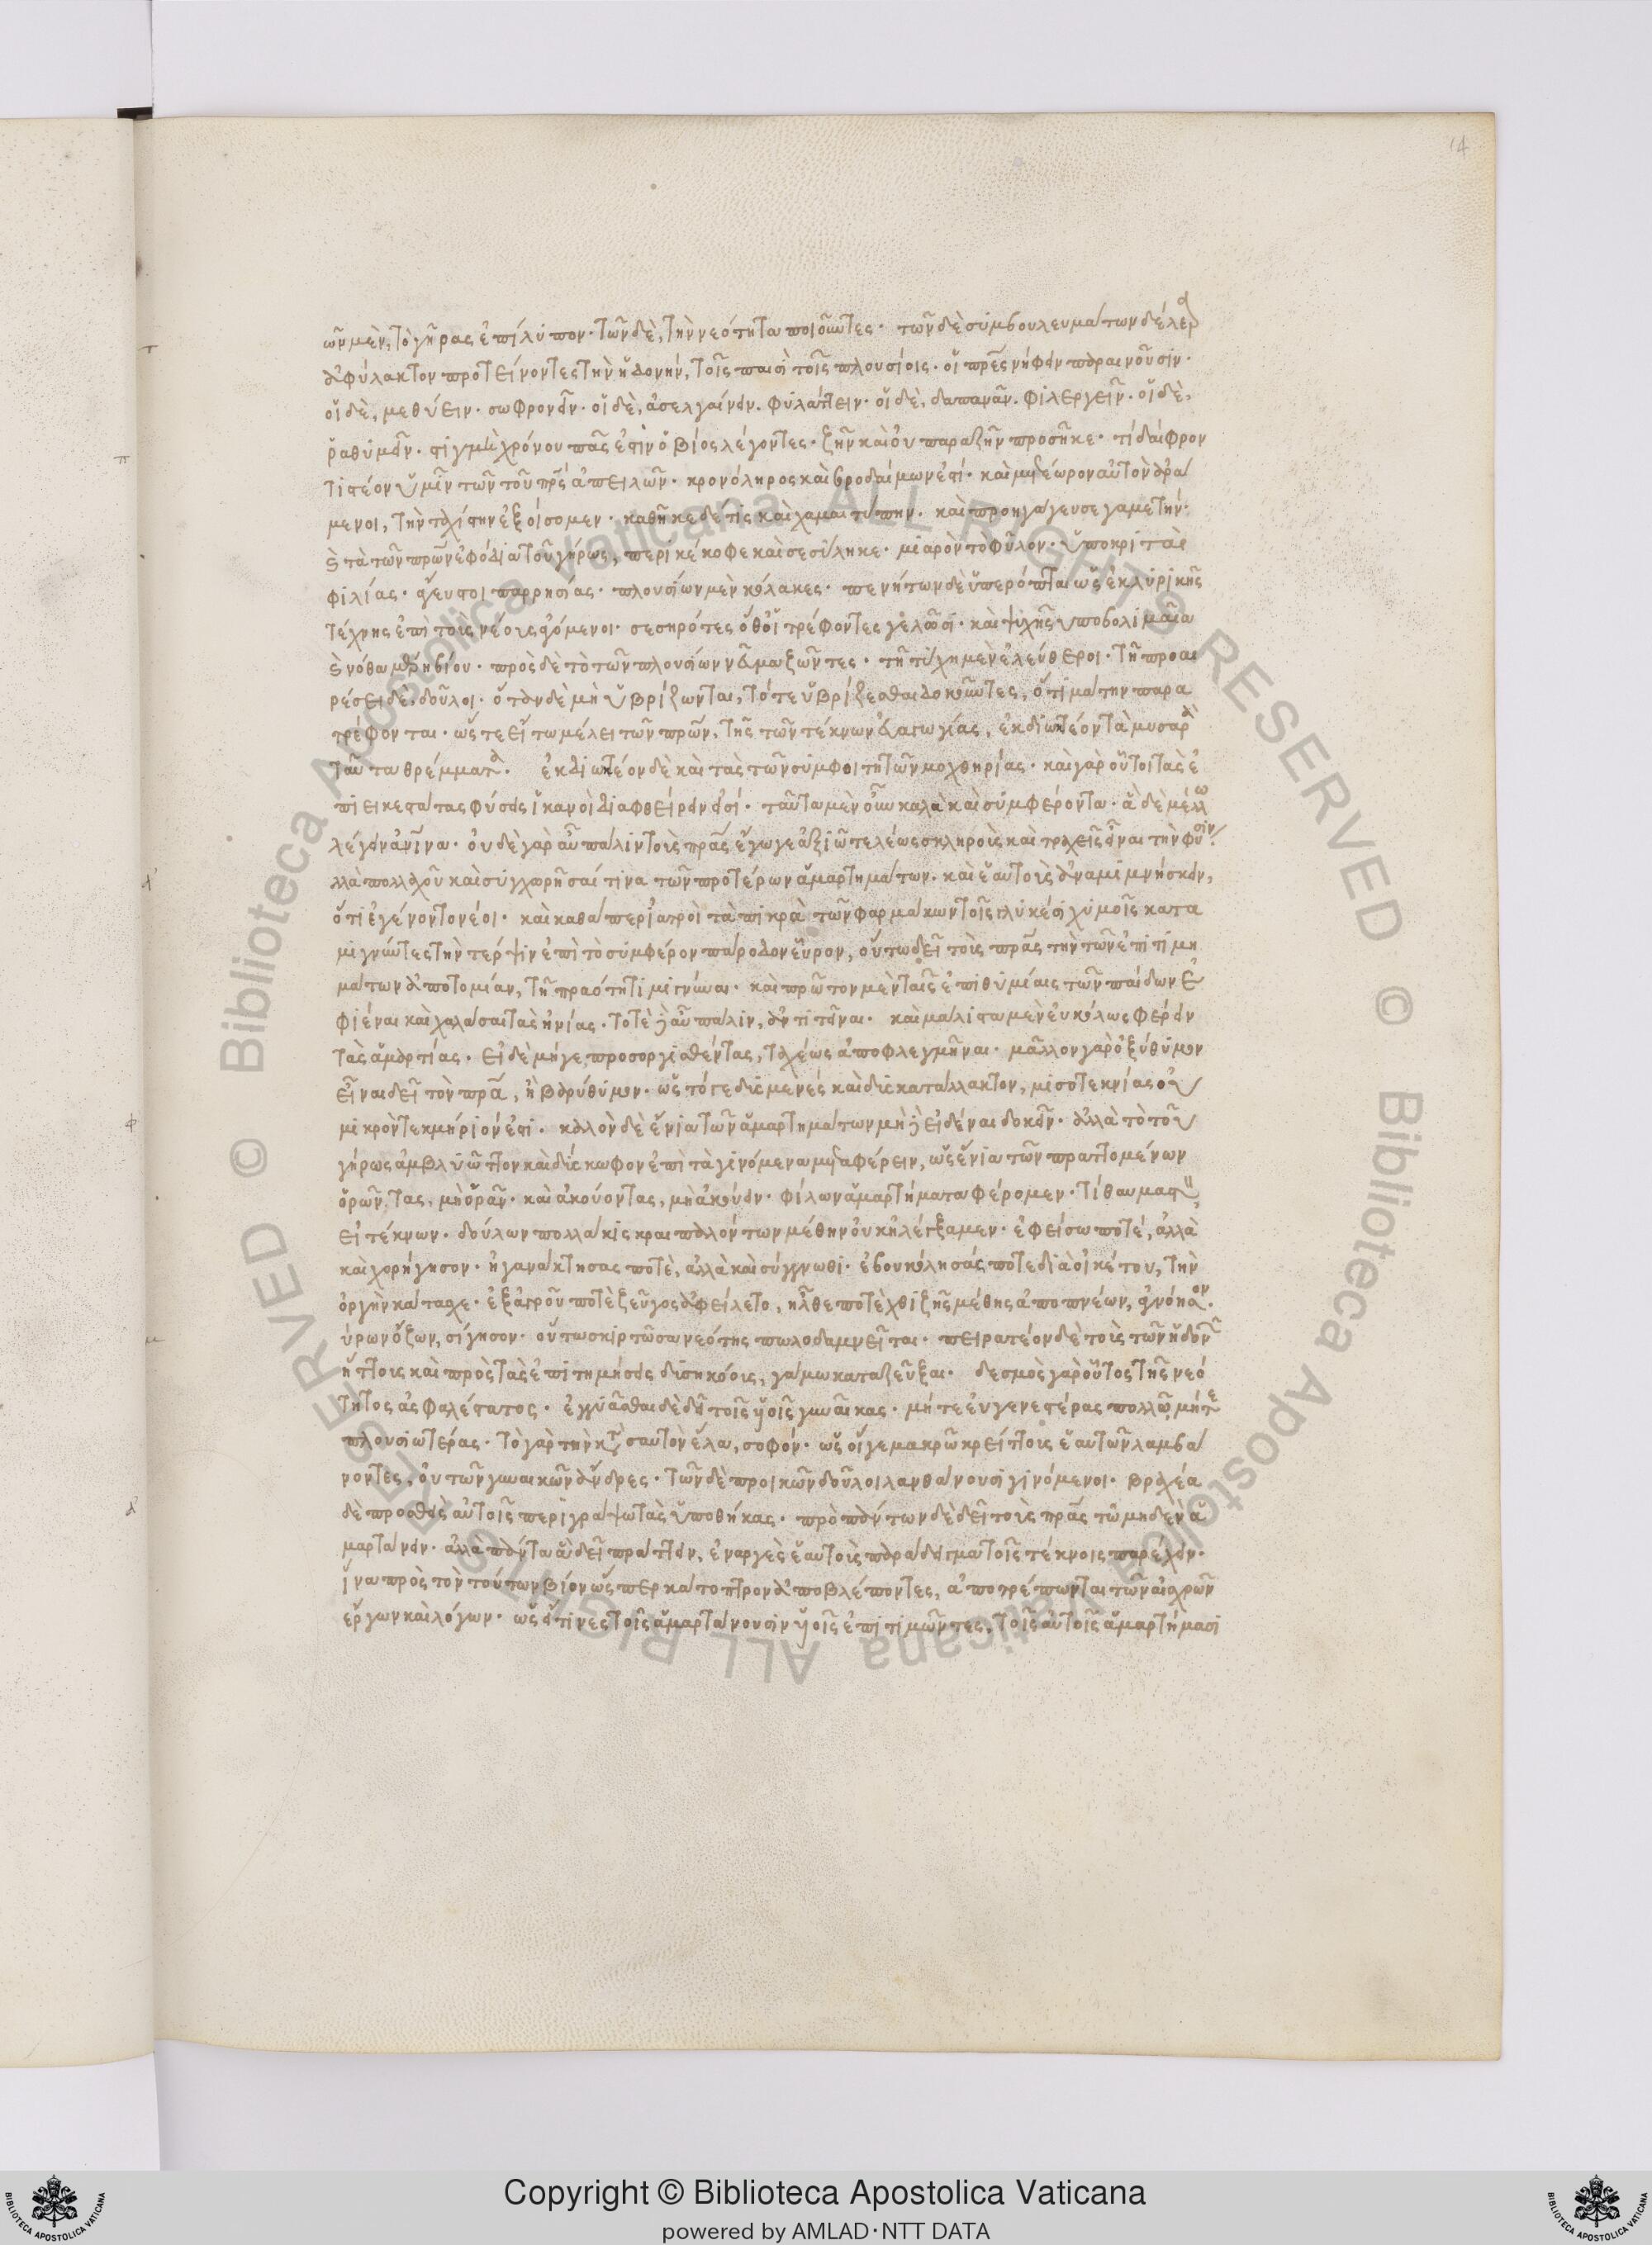 14
ὧν μὲν, τὸ γῆρας ἐπίλυπον· τῶν δὲ, τὴν νεότητα ποιοῦντες· τῶν δὲ συμβουλευμάτων δέλεαρ
ἀφύλακτον προτείνοντες τὴν ἡδονήν, τοῖς παισὶ τοῖς πλουσίοις· οἱ πρες νήφειν παραινοῦσιν·
οἱ δὲ, μεθύειν· σωφρονεῖν· οἱ δὲ, ἀσελγαίνειν. φυλάττειν· οἱ δὲ, δαπανᾶν. φιλεργεῖν· οἱ δὲ,
ῥαθυμεῖν· στιγμὴ χρόνου πᾶς ἐστὶν ὁ βίος λέγοντες· ζῆν καὶ οὐ παραζῆν προσῆκε· τί δαὶ φρον
τιστέον ὑμῖν τῶν τοῦ πρς ἀπειλῶν· κρονόληρος καὶ σοροδαίμων ἐστί· καὶ μετέωρον αὐτὸν ἀρά
μενοι, τὴν ταχίστην ἐξοίσομεν· καθῆκε δέ τις καὶ χαμαιτύπην· καὶ προηγάγευσε γαμετήν·
καὶ τὰ τῶν πρων ἐφόδια τοῦ γήρως, περικέκοφε καὶ σεσύληκε· μιαρὸν τὸ φῦλον· ὑποκριταὶ
φιλίας· ἄγευστοι παρρησίας· πλουσίων μὲν κόλακες· πενήτων δὲ ὑπερόπται ὡς ἐκ λυρικῆς
τέχνης ἐπὶ τοὺς νέους ἀγόμενοι· σεσηρότες ὅθ' οἱ τρέφοντες γελῶσι· καὶ ψυχῆς ὑποβολιμαῖα
καὶ νόθα μέρη βίου· πρὸς δὲ τὸ τῶν πλουσίων νεῦμα ζῶντες· τῇ τύχῃ μὲν ἐλεύθεροι· τῇ προαι
ρέσει δὲ, δοῦλοι· ὅταν δὲ μὴ ὑβρίζωνται, τότε ὑβρίζεσθαι δοκοῦντες, ὅτι μάτην παρα
τρέφονται· ὥστε εἴ τω μέλει τῶν πρων, τῆς τῶν τέκνων εὐαγωγίας, ἐκδιωκτέον τὰ μυσαρὰ
ταῦτα θρέμματα. ἐκδιωκτέον δὲ καὶ τὰς τῶν συμφοιτητῶν μοχθηρίας· καὶ γὰρ οὗτοι τὰς ἐ
πιεικεστάτας φύσεις ἱκανοὶ διαφθείρειν εἰσί· ταῦτα μὲν οὖν καλὰ καὶ συμφέροντα· ἃ δὲ μέλλω
λέγειν ἀνῖνα· οὐδὲ γὰρ αὖ πάλιν τοὺς πρας ἔγωγε ἀξιῶ τελέως σκληροὺς καὶ τραχεῖς εἶναι τὴν φύσιν·
λλὰ πολλαχοῦ καὶ συγχωρῆσαί τινα τῶν προτέρων ἁμαρτημάτων· καὶ ἑαυτοὺς ἀναμιμνήσκειν,
ὅτι ἐγένοντο νέοι· καὶ καθάπερ ἰατροὶ τὰ πικρὰ τῶν φαρμάκων τοῖς γλυκέσι χυμοῖς κατα
μιγνύντες τὴν τέρψιν ἐπὶ τὸ συμφέρον πάροδον εὗρον, οὕτω δεῖ τοὺς πρας τὴν τῶν ἐπιτιμη
μάτων ἀποτομίαν, τῇ πραότητι μιγνύναι· καὶ πρῶτον μὲν ταῖς ἐπιθυμίαις τῶν παίδων ἐ
φιέναι καὶ χαλάσαι τὰς ἡνίας· τοτὲ δ' αὖ πάλιν, ἀντιτεῖναι· καὶ μάλιστα μὲν εὐκόλως φέρειν
τὰς ἁμαρτίας· εἰ δὲ μήγε, προσοργισθέντας, ταχέως ἀποφλεγμῆναι· μᾶλλον γὰρ ὀξύθυμον
εἶναι δεῖ τὸν πρα, ἢ βαρύθυμον· ὡς τό γε δυσμενὲς καὶ δυσκατάλλακτον, μισοτεκνίας οὐ
μικρὸν τεκμήριόν ἐστι· καλὸν δὲ ἔνια τῶν ἁμαρτημάτων μὴ δ' εἰδέναι δοκεῖν· ἀλλὰ τὸ τοῦ
γήρως ἀμβλυῶττον καὶ δύσκωφον ἐπὶ τὰ γινόμενα μεταφέρειν, ὡς ἔνια τῶν πραττομένων
ὁρῶντας, μὴ ὁρᾶν· καὶ ἀκούοντας, μὴ ἀκούειν· φίλων ἁμαρτήματα φέρομεν· τί θαυμαστὸν
εἰ τέκνων· δούλων πολλάκις κραιπαλόντων μέθην οὐκ ἠλέγξαμεν· ἐφείσω ποτέ, ἀλλὰ
καὶ χορήγησον· ἠγανάκτησας ποτὲ, ἀλλὰ καὶ σύγγνωθι· ἐβουκόλησάς ποτε διὰ οἰκέτου, τὴν
ὀργὴν κάτασχε· ἐξ ἀγροῦ ποτὲ ζεῦγος ἀφείλετο, ἦλθε ποτὲ χθιζῆς μέθης ἀποπνέων, ἀγνόησον.
ύρων ὄζων, σίγησον· οὕτω σκιρτῶσα νεότης πωλοδαμνεῖται· πειρατέον δὲ τοὺς τῶν ἡδονῶν
ἥττους καὶ πρὸς τὰς ἐπιτιμήσεις δυσηκόους, γάμω καταζεῦξαι· δεσμὸς γὰρ οὗτος τῆς νεό
τητος ἀσφαλέστατος· ἐγγυᾶσθαι δὲ δεῖ τοῖς υἱοῖς γυναῖκας· μήτε εὐγενεστέρας πολλῷ, μήτε
πλουσιωτέρας· τὸ γὰρ τὴν κατὰ σαυτὸν ἔλα, σοφόν· ὡς οἵ γε μακρῶ κρείττους ἑαυτῶν λαμβά
νοντες, οὐ τῶν γυναικῶν ἄνδρες· τῶν δὲ προικῶν δοῦλοι λανθάνουσι γινόμενοι· βραχέα
δὲ προσθεὶς αὐτοῖς περιγράψω τὰς ὑποθήκας· πρὸ πάντων δὲ δεῖ τοὺς πρας τῷ μηδὲν ἁ
μαρτάνειν· ἀλλὰ πάντα ἃ δεῖ πράττειν, ἐναργὲς ἑαυτοὺς παράδειγμα τοῖς τέκνοις παρέχειν·
ἵνα πρὸς τὸν τούτων βίον ὥσπερ κάτοπτρον ἀποβλέποντες, ἀποτρέπωνται τῶν αἰσχρῶν
ἔργων καὶ λόγων· ὡς οἵτινες τοῖς ἁμαρτάνουσιν υἱοῖς ἐπιτιμῶντες, τοῖς αὐτοῖς ἁμαρτήμασι
Copyright © Biblioteca Apostolica Vaticana
powered by AMLAD·NTT DATA